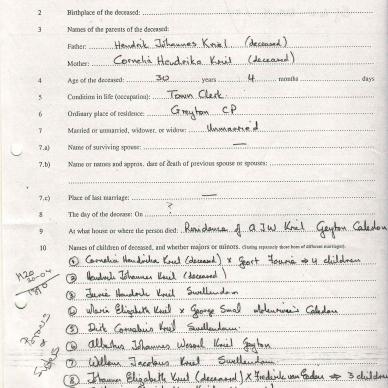 2 Birthplace of the deceased:
3 Names of the parents of the deceased:
Father: Hendrik Johannes Kriel (deceased)
Mother: Cornelia Hendrika Kriel (deceased)
4 Age of the deceased: 30 years 4 months days
5 Condition in life (occupation): Town Clerk
6 Ordinary place of residence: Greyton CP
7 Married or unmarried, widower, or widow: Unmarried
7.a) Name of surviving spouse: —
7.b) Name or names and approx. date of death of previous spouse or spouses:
7.c) Place of last marriage: —
8 The day of the decease: On ?
9 At what house or where the person died: Residence of A J W Kriel Geyton Caledon
10 Names of children of deceased, and whether majors or minors. (Stating separately those born of different marriages).
① Cornelia Hendricka Kriel (deceased) x Gert Fourie ⇒ 4 children
② Hendrik Johannes Kriel (deceased)
③ Hendrik Kriel Swellendam
④ Maria Elizabeth Kriel x George Smal Caledon
⑤ Dirk Cornelius Kriel Swellendam
⑥ Albertus Johannes Wessel Kriel Geyton
⑦ Willem Jacobus Kriel Swellendam
⑧ Johanna Elizabeth Kriel (deceased) x Fredrick van Eeden ⇒ 3 children